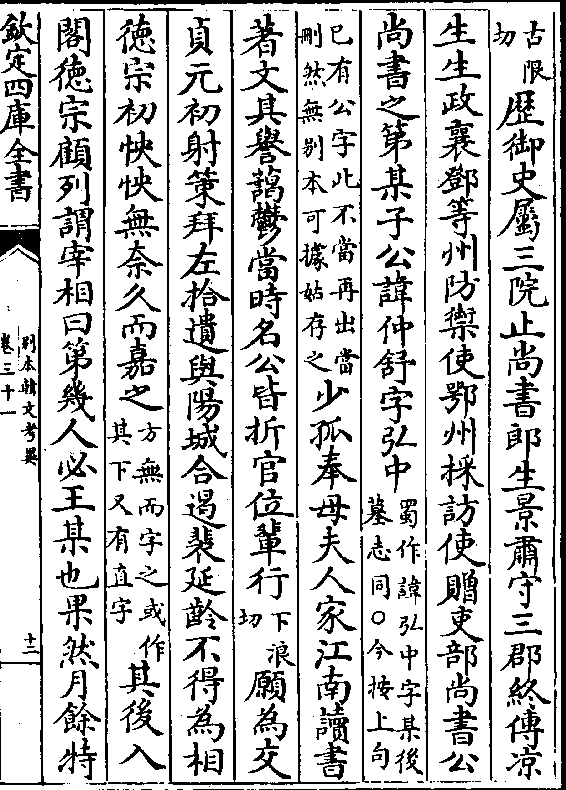 古限切歷御史屬三院止尚書郎生景肅守三郡終傅凉
生生政襄鄧等州防禦使鄂州採訪使贈吏部尚書公
尚書之第某子公諱仲舒字弘中蜀作諱弘中字某後墓志同○今按上句
已有公字此不當再出當刪然無别本可據姑存之少孤奉母夫人家江南讀書
著文其譽藹鬱當時名公皆折官位輩行下浪切願為交
貞元初射策拜左拾遺與陽城合遏裴延齡不得為相
德宗初怏怏無奈久而嘉之方無而字之或作其下又有直字其後入
閣德宗顧列謂宰相曰第幾人必王某也果然月餘特
欽定四庫全書
别本韓文考異
卷三十一